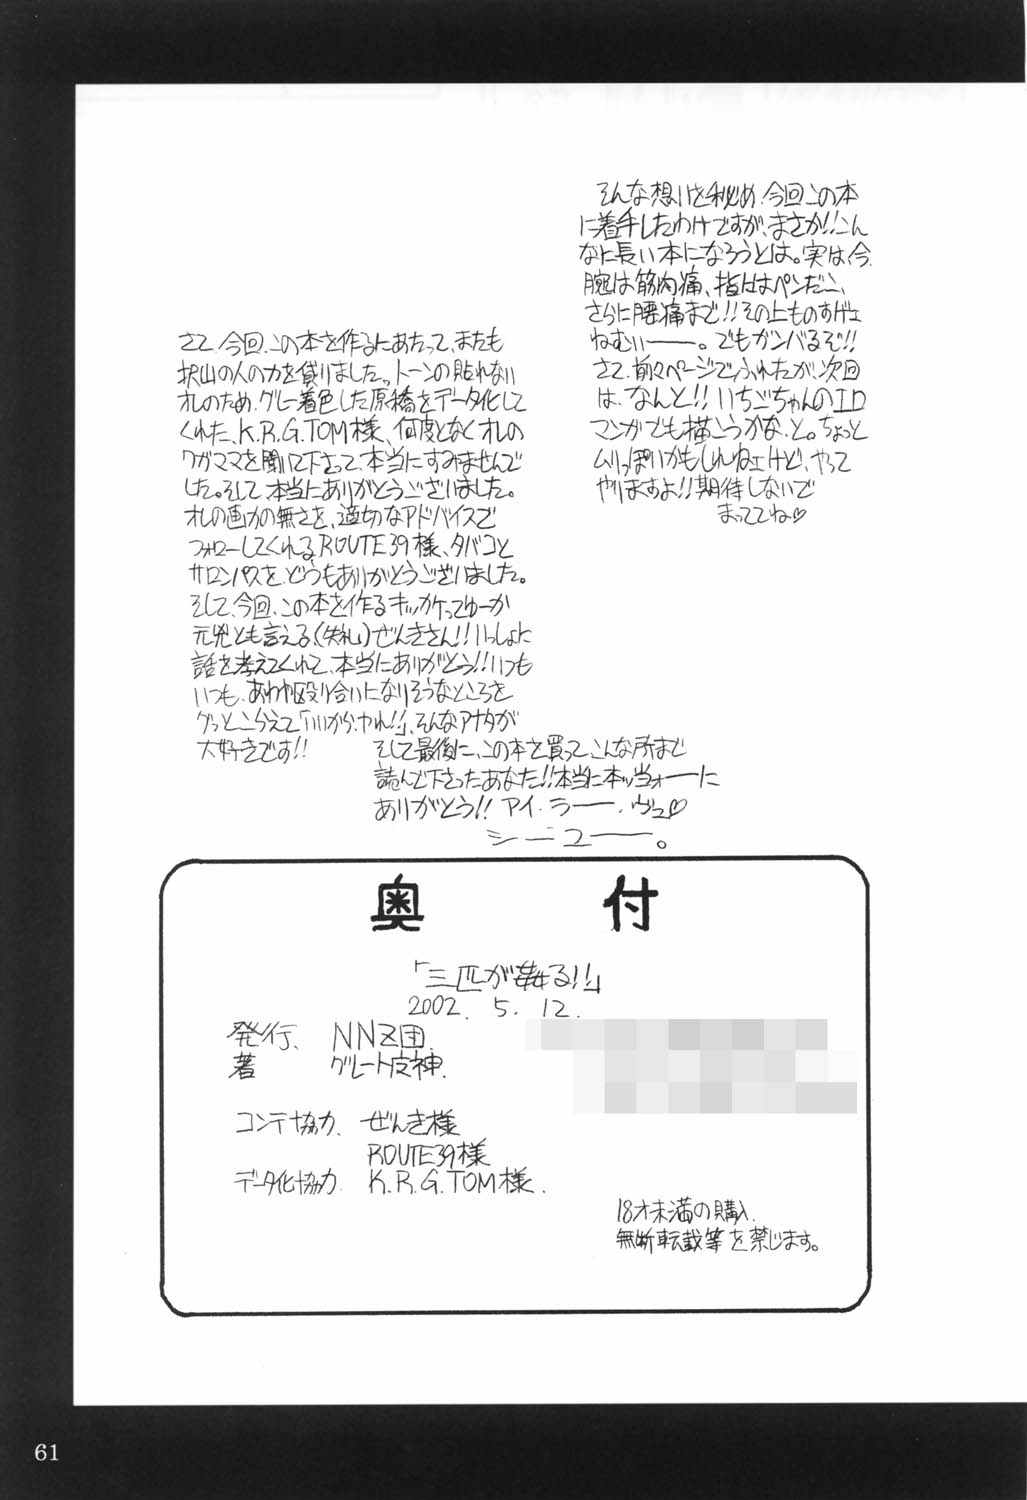 そんな想いを秘め、今回この本
に着手したわけですが、まさか!!こん
なに長い本になろうとは。実は、今、
腕は筋肉痛、指はペンだこ、
さらに腰痛まで!!その上ものすげェ
ねむいーー。でもガンバるぞ!!
さて、前々ページでふれたが、次回
は、なんと!!いちごちゃんのエロ
マンガでも描こうかな、と。ちょっと
ムリっぽいかもしれねェけど、やって
やりますよ!!期待しないで
まっててね♡
さて、今回、この本を作るにあたって、またも
沢山の人の力を借りました。トーンの貼れない
オレのため、グレー着色した原稿をデータ化して
くれた、K.R.G.TOM様、何度となくオレの
ワガママを聞いて下さって、本当にすみませんで
した。そして、本当にありがとうございました。
オレの画力の無さを、適切なアドバイスで
フォローしてくれるROUTE39様、タバコと
サロンパスを、どうもありがとうございました。
そして、今回、この本を作るキッカケってゆーか
元兇とも言える、(失礼)ぜんきさん!!いっしょに
話を考えてくれて、本当にありがとう!!いつも
いつも、あわや殴り合いになりそうなところを
グッとこらえて「いいから、やれ!!」、そんなアナタが
大好きです!!
そして最後に、この本を買って、こんな所まで
読んで下さったあなた!!本当に本ッ当ォーーに
ありがとう!!アイ・ラー・ヴュ♡
シーユーー。
奥付
「三匹が姦る!!」
2002. 5. 12.
発行、NNZ団.
著 グレート皮神.
コンテ協力、ぜんき様
ROUTE39様
データ化協力 K.R.G.TOM様.
18才未満の購入、
無断転載等を禁じます。
61